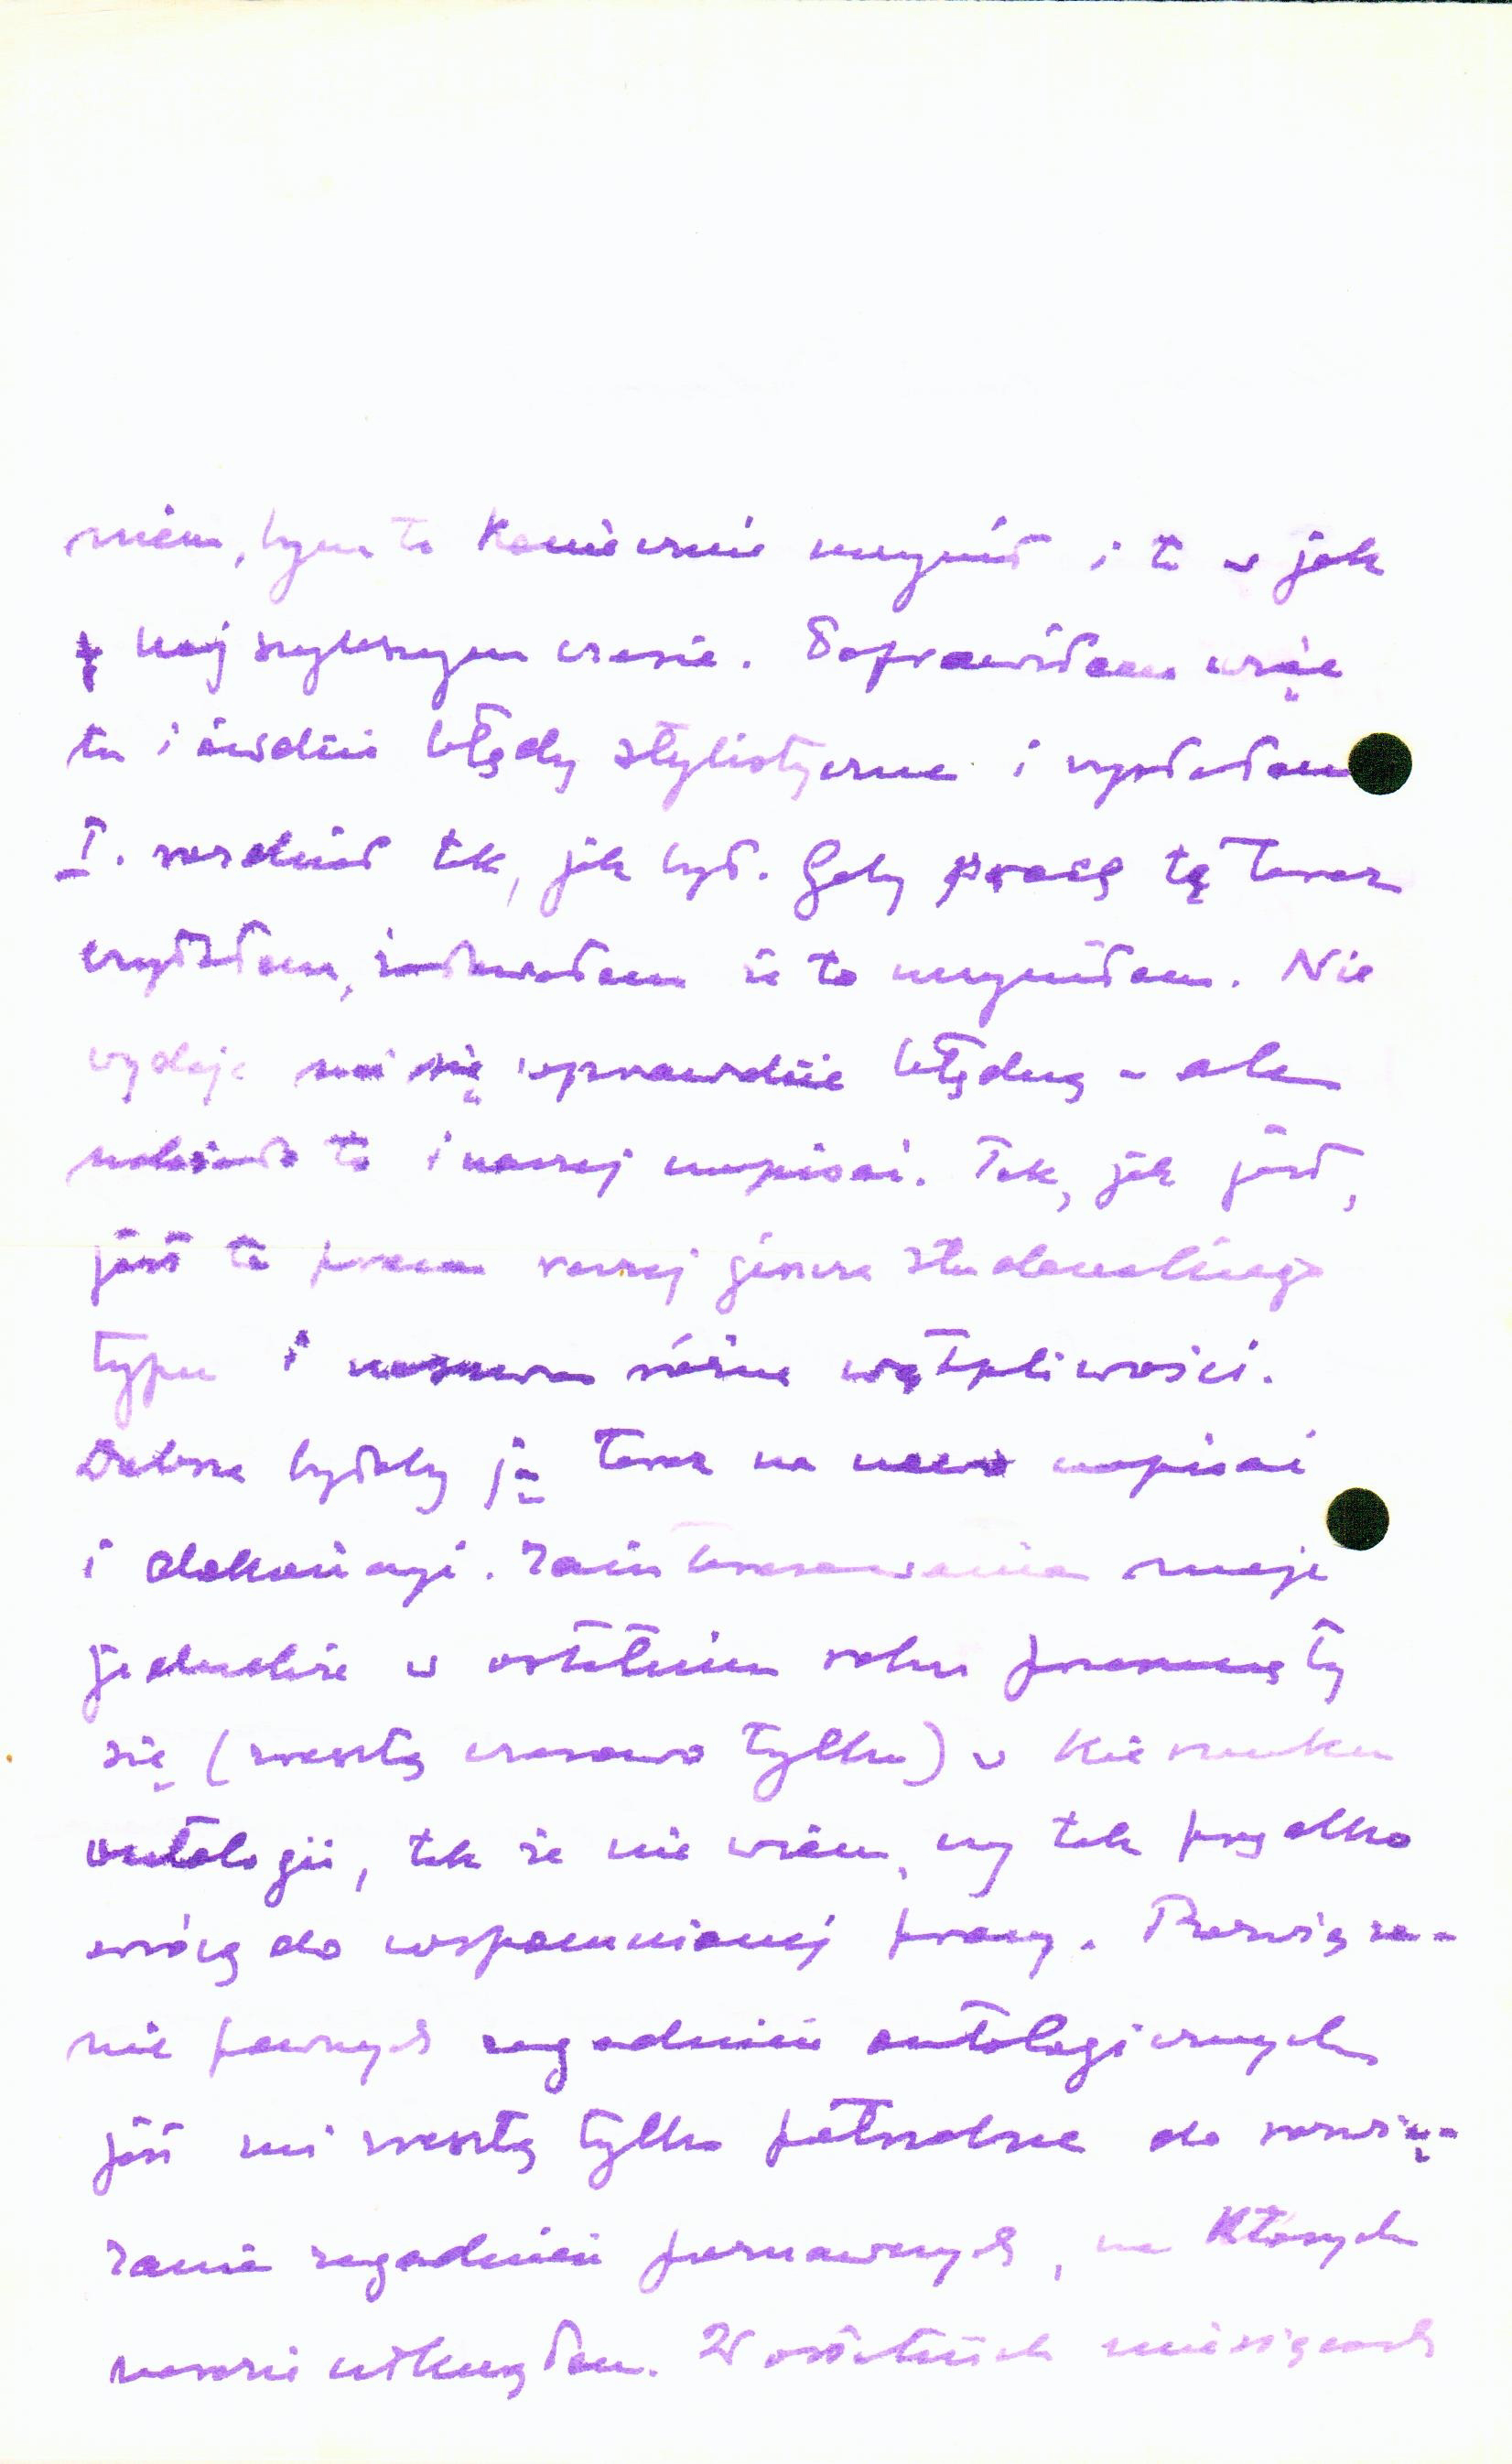 mien, bym to koniecznie uczynił i to w jak
najszybszym czasie. Poprawiłam więc
tu i ówdzie błędy stylistyczne i wysłałam
I. rozdział tak, jak był. Gdy pracę tę teraz
czytałam, żałowałam że to uczyniłam. Nie
wydaje mi się wprawdzie błędną – ale
należało to inaczej napisać. Tak, jak jest,
jest to praca raczej jeszcze studenckiego
typu i nasuwa różne wątpliwości.
Dobrze byłoby ją teraz na nowo napisać
i dokończyć. Zainteresowania moje
jednakże w ostatnim roku przesunęły
się (zresztą czasowo tylko) w kierunku
ontologii, tak że nie wiem, czy tak prędko
wrócę do wspomnianej pracy. Rozwiąza-
nie pewnych zagadnień ontologicznych
jest mi zresztą tylko potrzebne do rozwią-
zania zagadnień poznawczych, na których
razie utknęłam. W ostatnich miesiącach